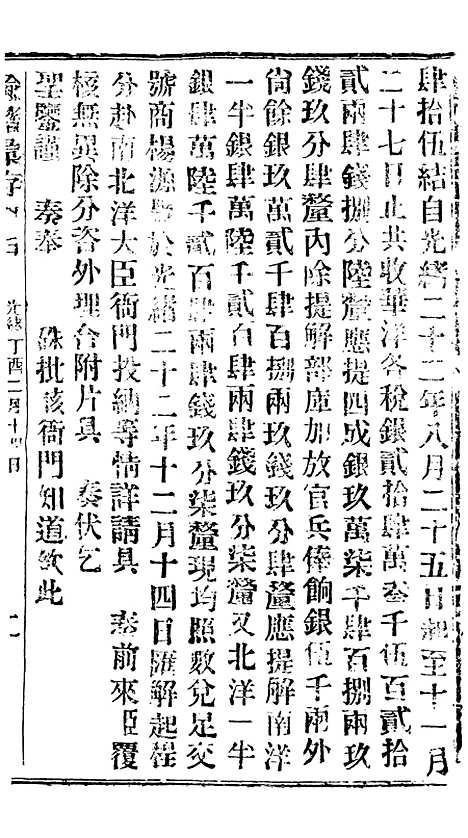 肆拾伍結自光緒二十二年八月二十五日起至十一月
二十七日止共收華洋各稅銀貳拾肆萬叁千伍百貳拾
貳兩肆錢捌分陸釐應提四成銀玖萬柒千肆百捌兩玖
錢玖分肆釐內除提解部庫加放官兵俸餉銀伍千兩外
尙餘銀玖萬貳千肆百捌兩玖錢玖分肆釐應提解南洋
一半銀肆萬陸千貳百肆兩肆錢玖分柒釐又北洋一半
銀肆萬陸千貳百肆兩肆錢玖分柒釐現均照數兌足交
號商楊源 於光緒二十二年十二月十四日匯解起程
分赴南北洋大臣衙門投納等情詳請具 奏前來臣覆
核無異除分咨外理合附片具 奏伏乞
聖鑒謹 奏奉 硃批該衙門知道欽此
諭摺彙存 光緒丁酉二月十四日